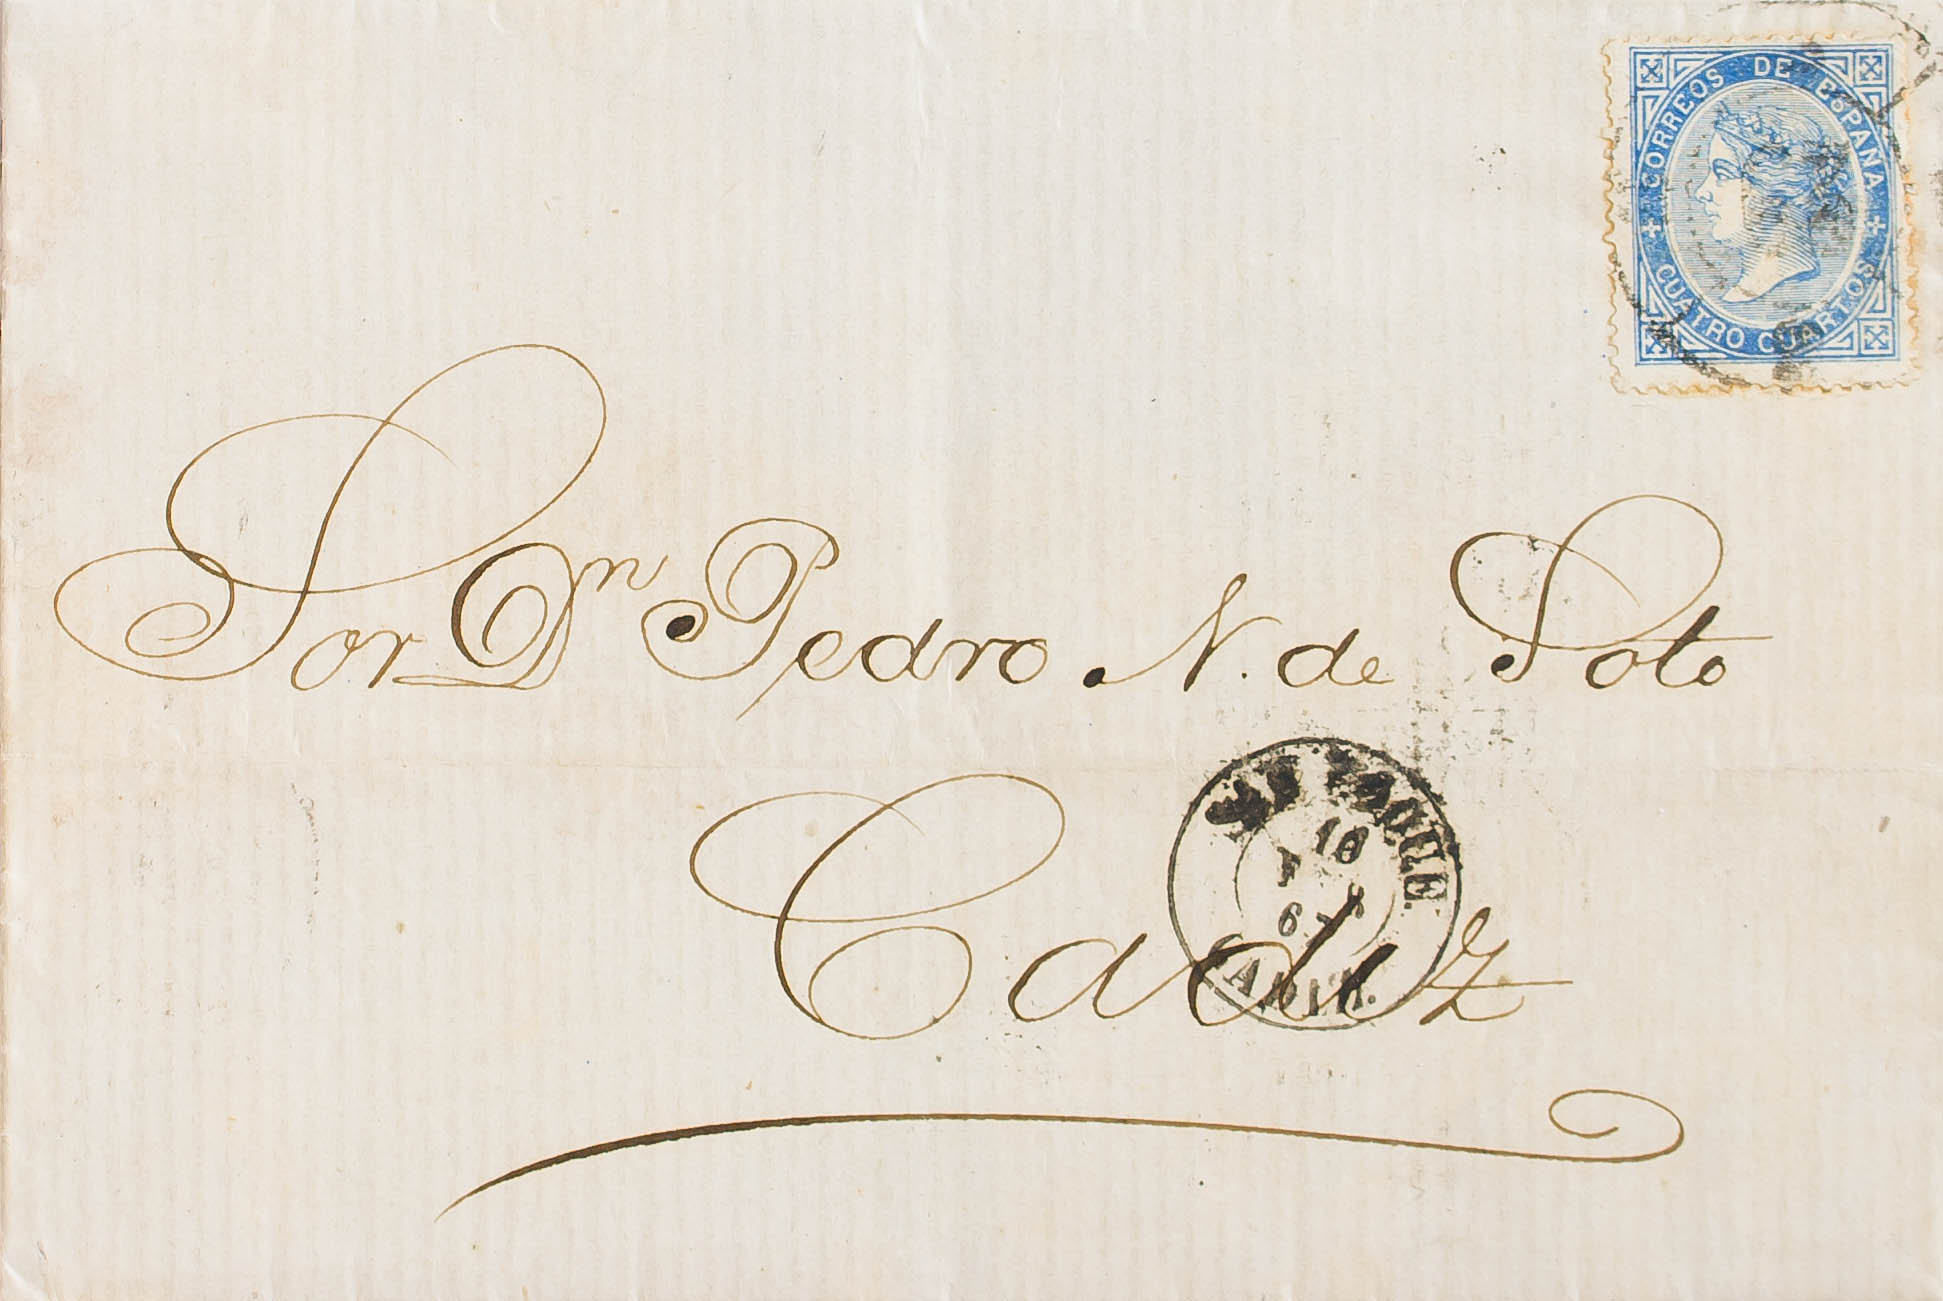 CORREOS DE ESPAÑA
CUATRO CUARTOS
Sor Dn Pedro N. de Soto
Cadiz
SAN ROQUE.
6
CADIZ.